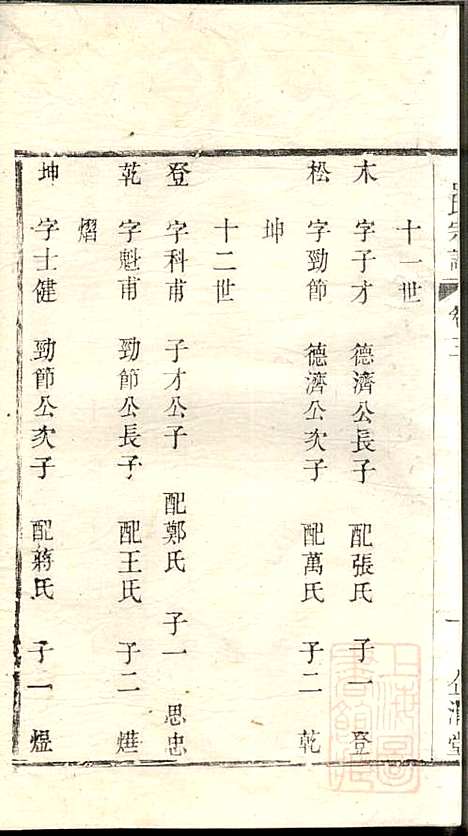 氏宗譜 卷三 一
十一世
木 字子才 德濟公長子 配張氏 子一 登
松 字勁節 德濟公次子 配萬氏 子二 乾
坤
十二世
登 字科甫 子才公子 配鄭氏 子一 思忠
乾 字魁甫 勁節公長子 配王氏 子二 燁
熠
坤 字士健 勁節公次子 配蔣氏 子一 煜
上海圖書館藏